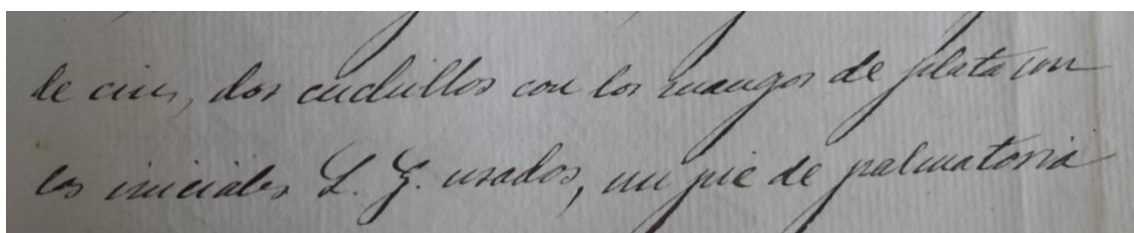 de cinc, dos cuchillos con los mangos de plata con
las iniciales L. G. usados, un pie de palmatoria